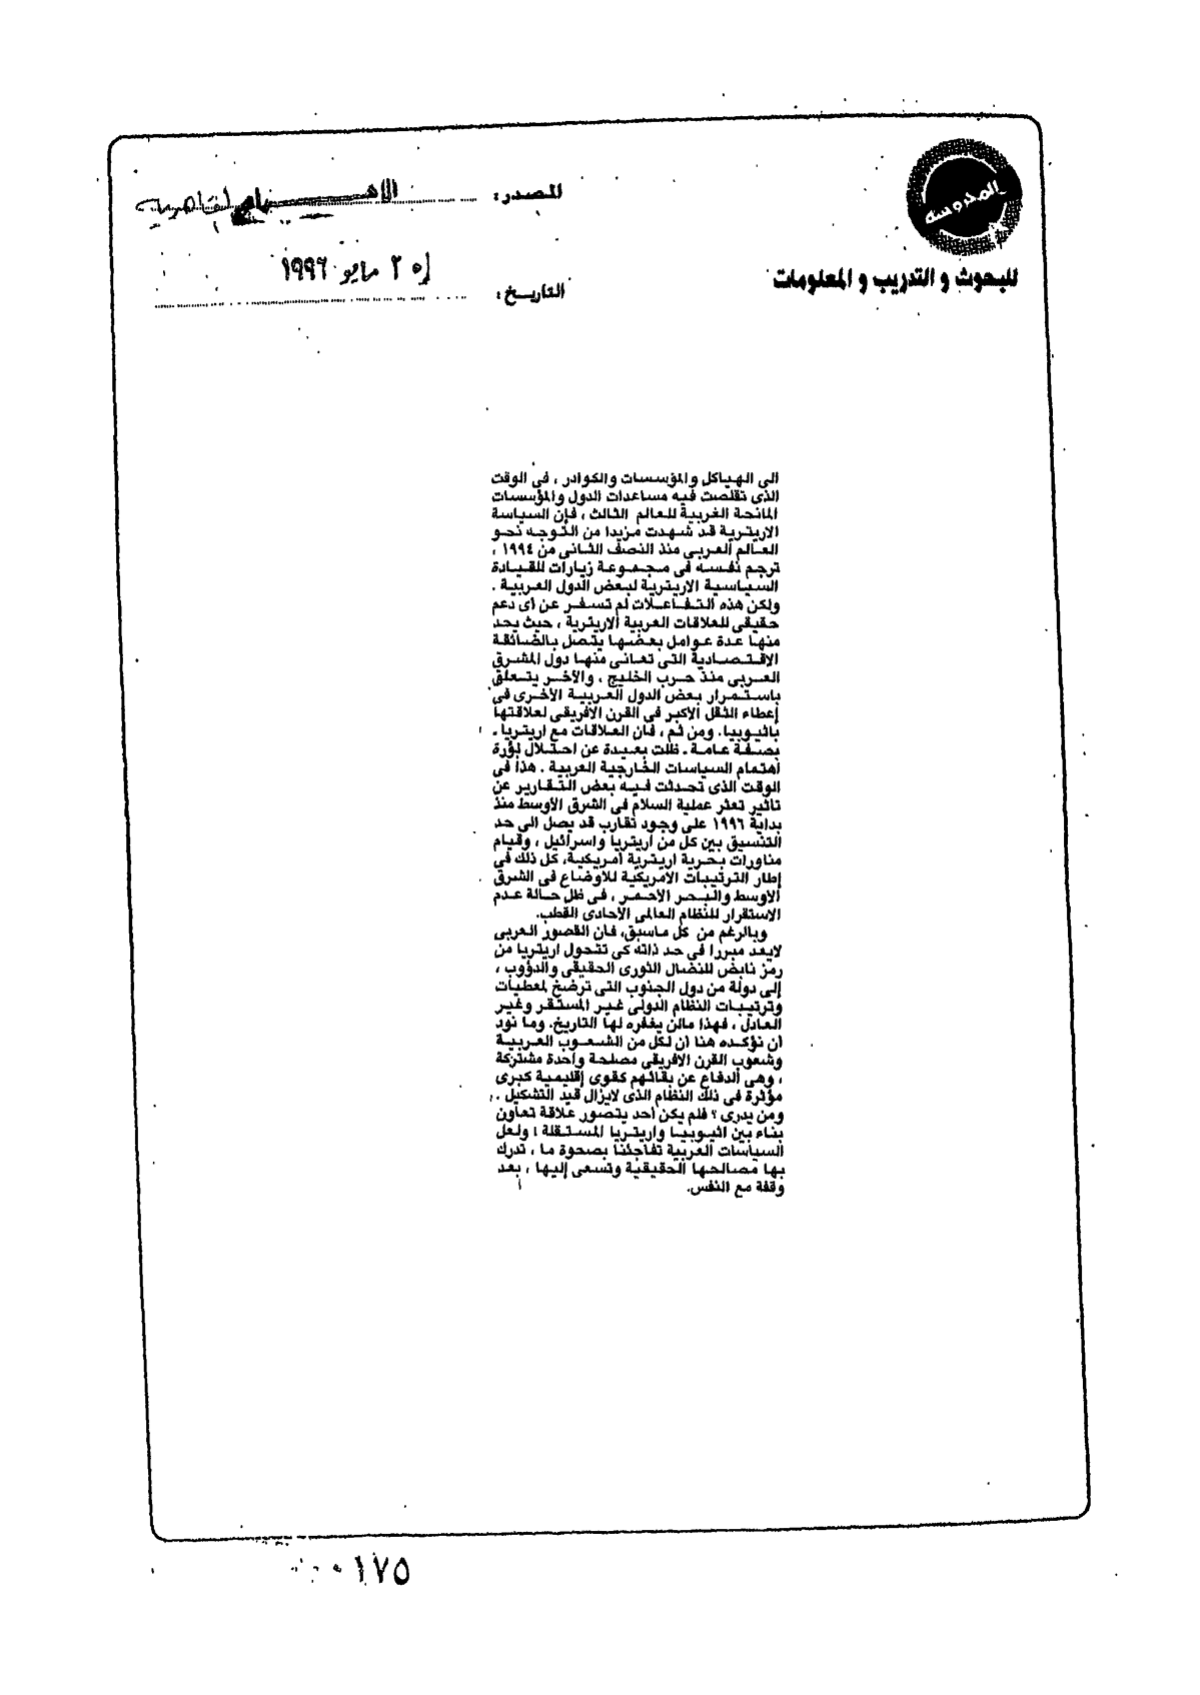 المحروسة
للبحوث و التدريب و المعلومات
المصدر:
التاريخ: مايو ١٩٩٦
الى الهياكل والمؤسسات والكوادر ، فى الوقت
الذى تقلصت فيه مساعدات الدول والمؤسسات
المانحة الغربية للعالم الثالث ، فإن السياسة
الاريترية قد شهدت مزيدا من التوجه نحو
العالم العربى منذ النصف الثانى من ١٩٩٤ ،
ترجم نفسه فى مجموعة زيارات للقيادة
السياسية الاريترية لبعض الدول العربية .
ولكن هذه التفاعلات لم تسفر عن أى دعم
حقيقى للعلاقات العربية الاريترية ، حيث يحد
منها عدة عوامل بعضها يتصل بالضائقة
الاقتصادية التى تعانى منها دول المشرق
العربى منذ حرب الخليج ، والآخر يتعلق
باستمرار بعض الدول العربية الأخرى فى
إعطاء الثقل الأكبر فى القرن الافريقى لعلاقتها
باثيوبيا. ومن ثم ، فان العلاقات مع اريتريا ـ
بصفة عامة ـ ظلت بعيدة عن احتلال بؤرة
اهتمام السياسات الخارجية العربية . هذا فى
الوقت الذى تحدثت فيه بعض التقارير عن
تأثير تعثر عملية السلام فى الشرق الأوسط منذ
بداية ١٩٩٦ على وجود تقارب قد يصل الى حد
التنسيق بين كل من اريتريا واسرائيل ، وقيام
مناورات بحرية اريترية أمريكية، كل ذلك فى
إطار الترتيبات الأمريكية للأوضاع فى الشرق
الأوسط والبحر الأحمر ، فى ظل حالة عدم
الاستقرار للنظام العالمى الأحادى القطب.
وبالرغم من كل ماسبق، فان القصور العربى
لايعد مبررا فى حد ذاته كى تتحول اريتريا من
رمز نابض للنضال الثورى الحقيقى والدؤوب ،
إلى دولة من دول الجنوب التى ترضخ لمعطيات
وترتيبات النظام الدولى غير المستقر وغير
العادل ، فهذا مالن يغفره لها التاريخ. وما نود
أن نؤكده هنا ان لكل من الشعوب العربية
وشعوب القرن الافريقى مصلحة واحدة مشتركة
، وهى الدفاع عن بقائهم كقوى إقليمية كبرى
مؤثرة فى ذلك النظام الذى لايزال قيد التشكيل .
ومن يدرى ؟ فلم يكن أحد يتصور علاقة تعاون
بناء بين اثيوبيا واريتريا المستقلة ! ولعل
السياسات العربية تفاجئنا بصحوة ما ، تدرك
بها مصالحها الحقيقية وتسعى إليها ، بعد
وقفة مع النفس.
٠١٧٥